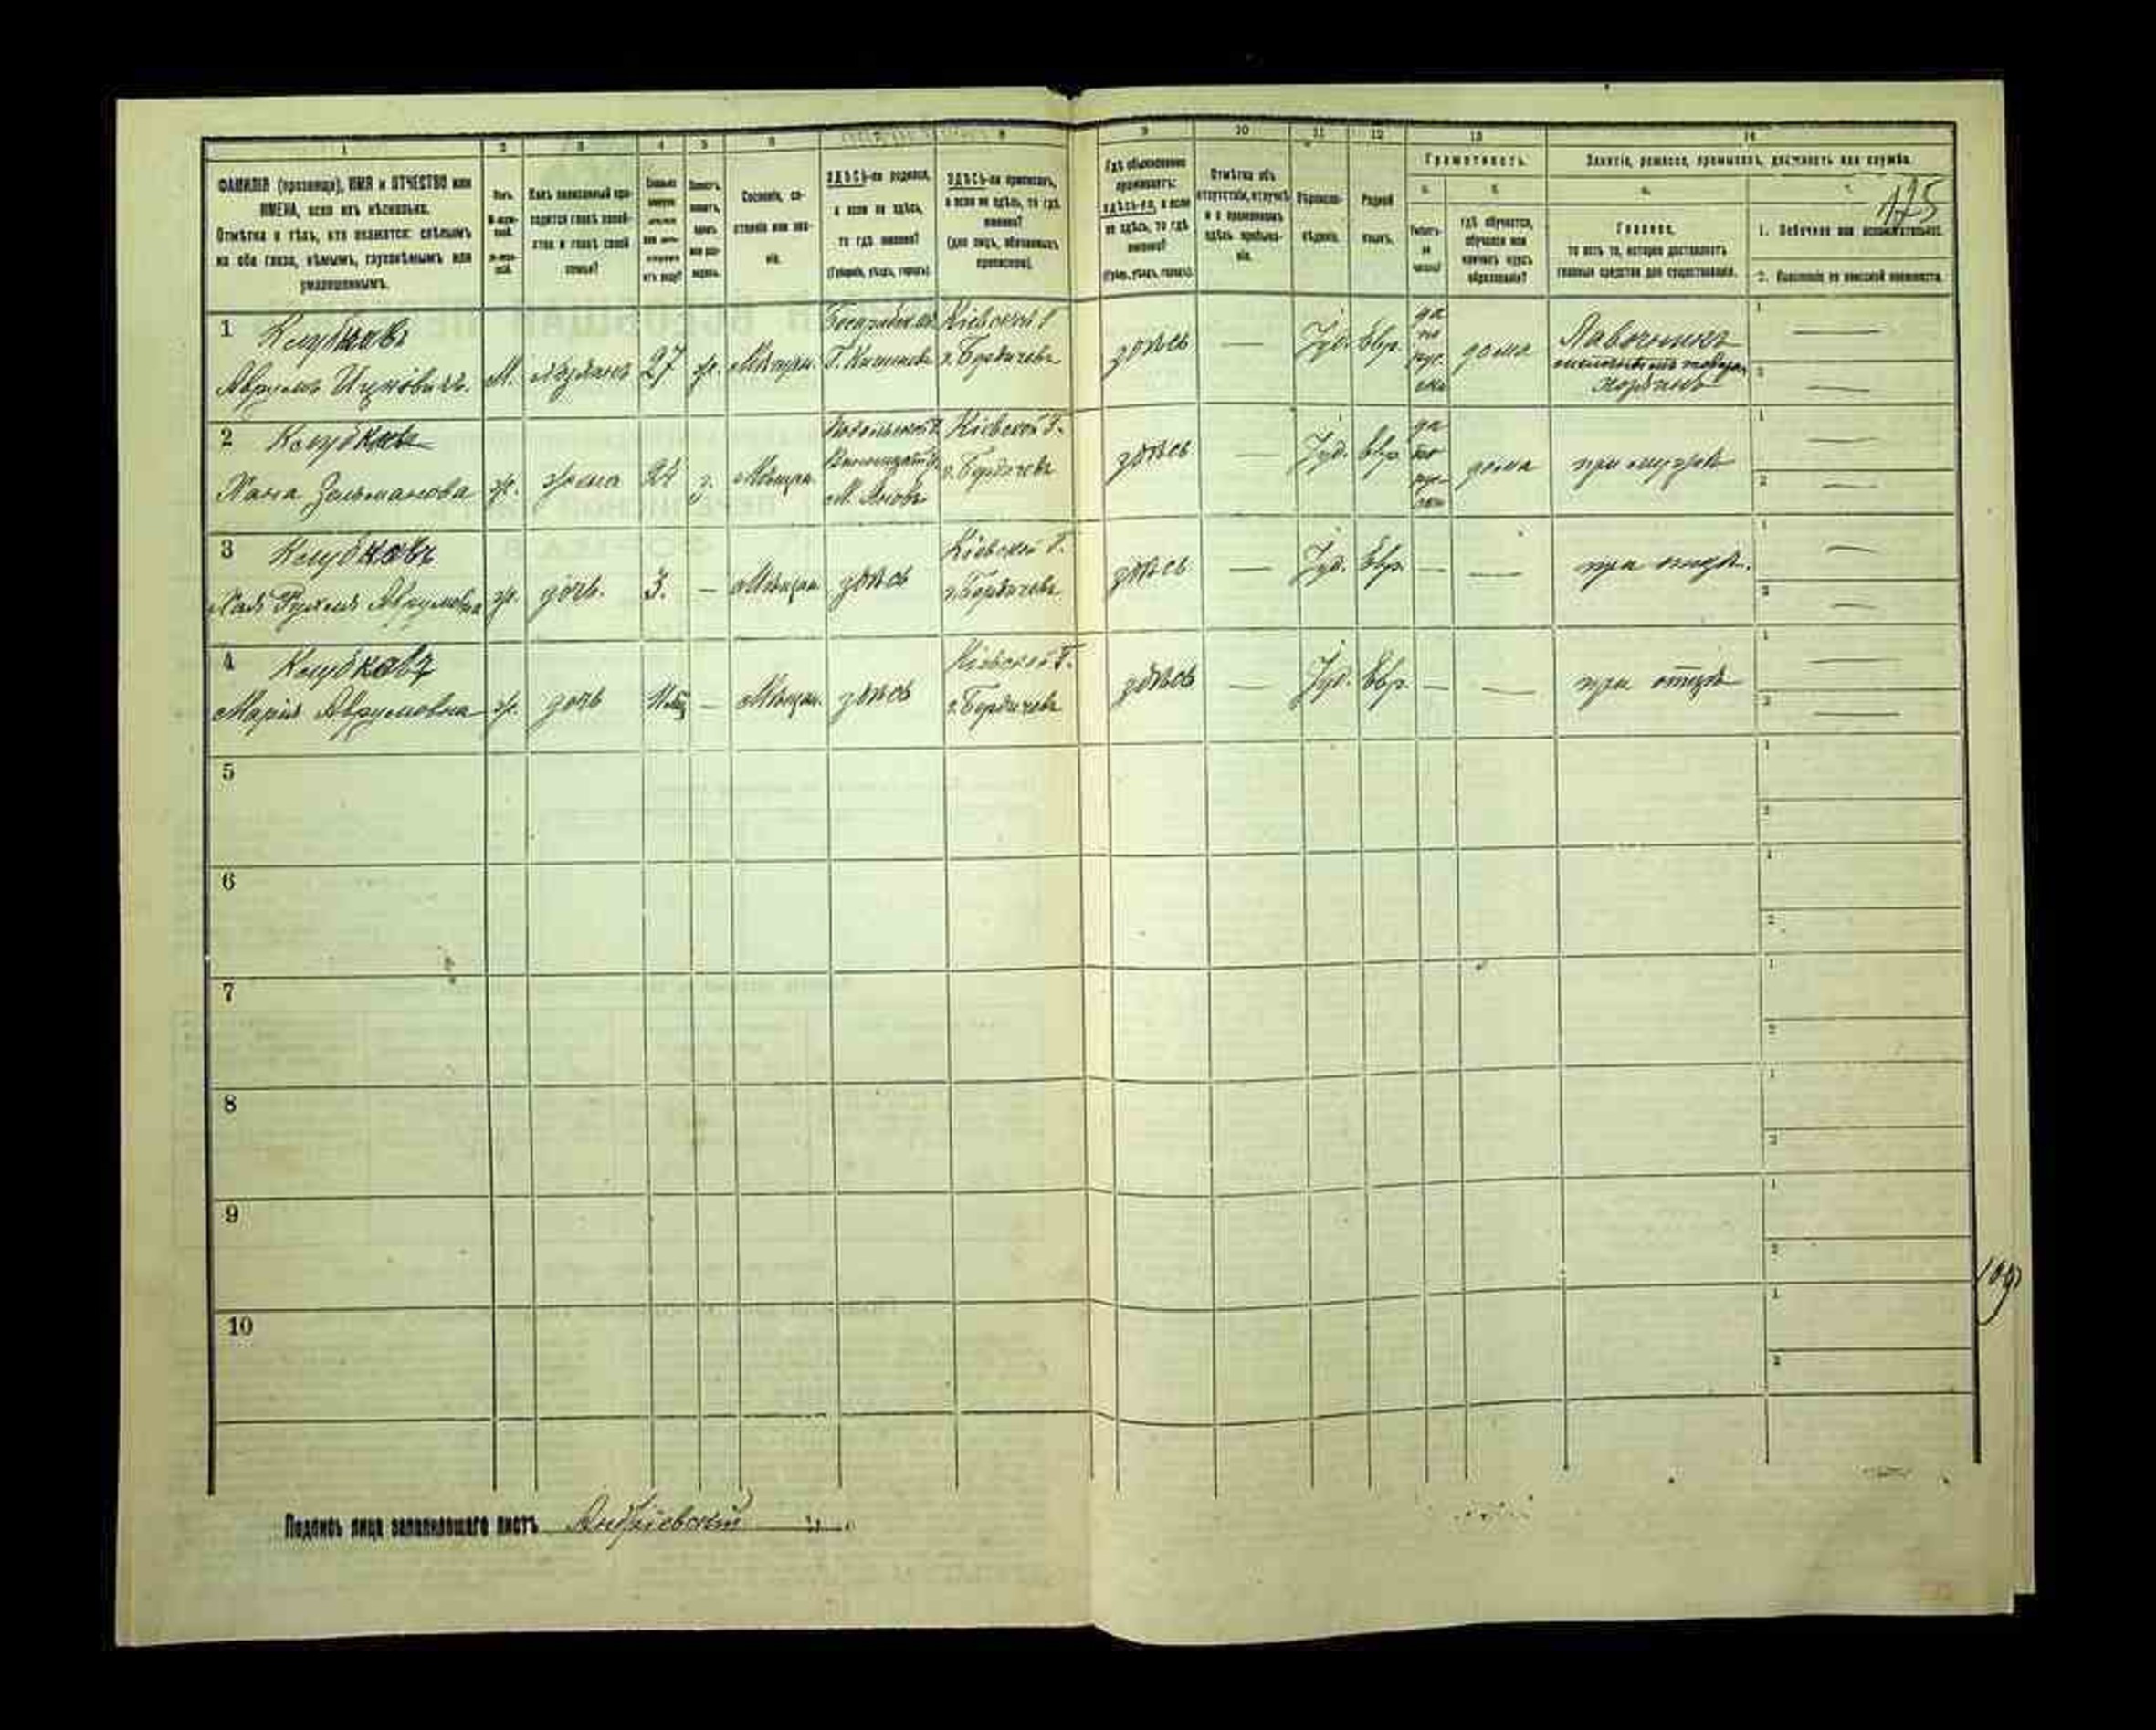 1 2 3 4 5 6 7 8 9 10 11 12 13 14
ФАМИЛІЯ (прозвище), ИМЯ и ОТЧЕСТВО или
ИМЕНА, если ихъ нѣсколько.
Отмѣтка о тѣхъ, кто окажется: слѣпымъ
на оба глаза, нѣмымъ, глухонѣмымъ или
умалишеннымъ.
Полъ.
Какъ записанный при-
ходится главѣ хозяй-
ства и главѣ своей
семьи?
Сословіе, со-
стояніе или зва-
ніе.
ЗДѢСЬ-ли родился,
а если не здѣсь,
то гдѣ именно?
(Губернія, уѣздъ, городъ).
ЗДѢСЬ-ли приписанъ,
а если не здѣсь, то гдѣ
именно?
(для лицъ, обязанныхъ
припиской).
Гдѣ обыкновенно
проживаетъ:
здѣсь-ли, а если
не здѣсь, то гдѣ
именно?
(Губ., уѣздъ, городъ).
Отмѣтка объ
отсутствіи, отлучкѣ
и о временномъ
здѣсь пребыва-
ніи.
Вѣроиспо-
вѣданіе.
Родной
языкъ.
Грамотность.
гдѣ обучается,
обучался или
кончилъ курсъ
образованія?
Занятіе, ремесло, промыселъ, должность или служба.
Главное,
то есть то, которое доставляетъ
главныя средства для существованія.
175
1. Побочное или вспомогательное.
2. Положеніе по воинской повинности.
1 Клубковъ
Аврумъ Ицковичъ. М. хозяинъ 27 ж. Мѣщан.
Г. Кишиневъ
Кіевской Г.
г. Бердичевъ
здѣсь — Іуд. Евр.
да
по
рус-
ски
дома
Лавочникъ
хозяинъ
2 Клубковъ
Хана Зельманова ж. жена 24 з. Мѣщан.
Подольской Г.
М. Яновъ
Кіевской Г.
г. Бердичевъ
здѣсь — Іуд. Евр.
да
по
рус-
ски
дома при мужѣ
3 Клубковъ
Хая Рухля Аврумовна ж. дочь. 3. — Мѣщан. здѣсь
Кіевской Г.
г. Бердичевъ
здѣсь — Іуд. Евр. — — при отцѣ.
4 Клубковъ
Марія Аврумовна ж. дочь 11 мѣс — Мѣщан. здѣсь
Кіевской Г.
г. Бердичевъ
здѣсь — Іуд. Евр. — — при отцѣ
5
6
7
8
9
10
Подпись лица заполнявшаго листъ Андріевскій